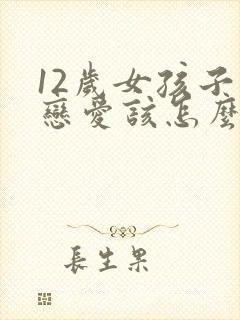 12歲女孩子
戀愛該怎麼
長生果